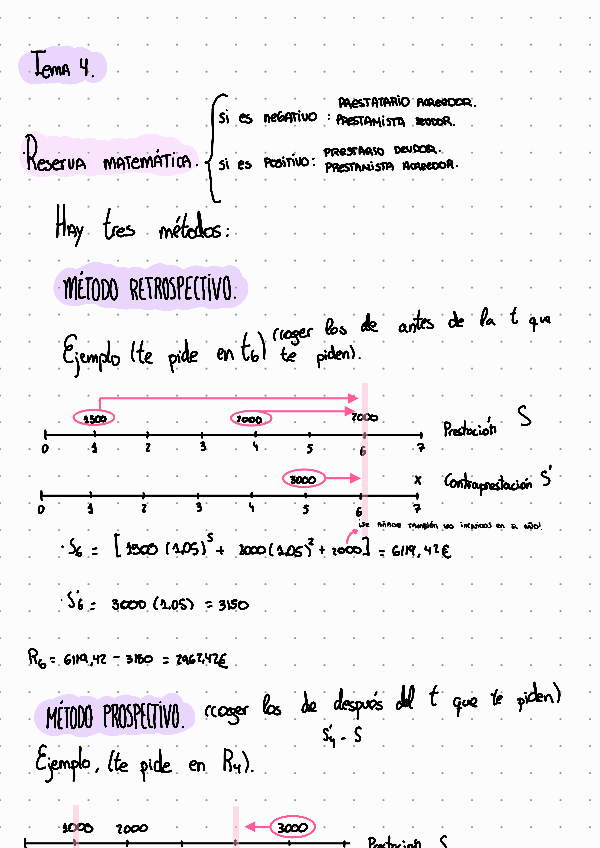 Tema 4.
Reserva matemática.
si es negativo : PRESTATARIO ACREEDOR.
PRESTAMISTA DEUDOR.
si es positivo: PRESTARIO DEUDOR.
PRESTAMISTA ACREEDOR.
Hay tres métodos:
MÉTODO RETROSPECTIVO.
Ejemplo (te pide en t6) (coger los de antes de la t que te piden).
1500 2000 2000
0 1 2 3 4 5 6 7 Prestación S
3000 x
0 1 2 3 4 5 6 7 Contraprestación S'
S6 = [1500 (1.05)^5 + 2000 (1.05)^2 + 2000] = 6119,42€
S'6 = 3000 (1.05) = 3150
R6 = 6119,42 - 3150 = 2967,42€
MÉTODO PROSPECTIVO. (coger los de después del t que te piden)
S'4 - S
Ejemplo, (te pide en R4).
1000 2000 3000
Prestación S